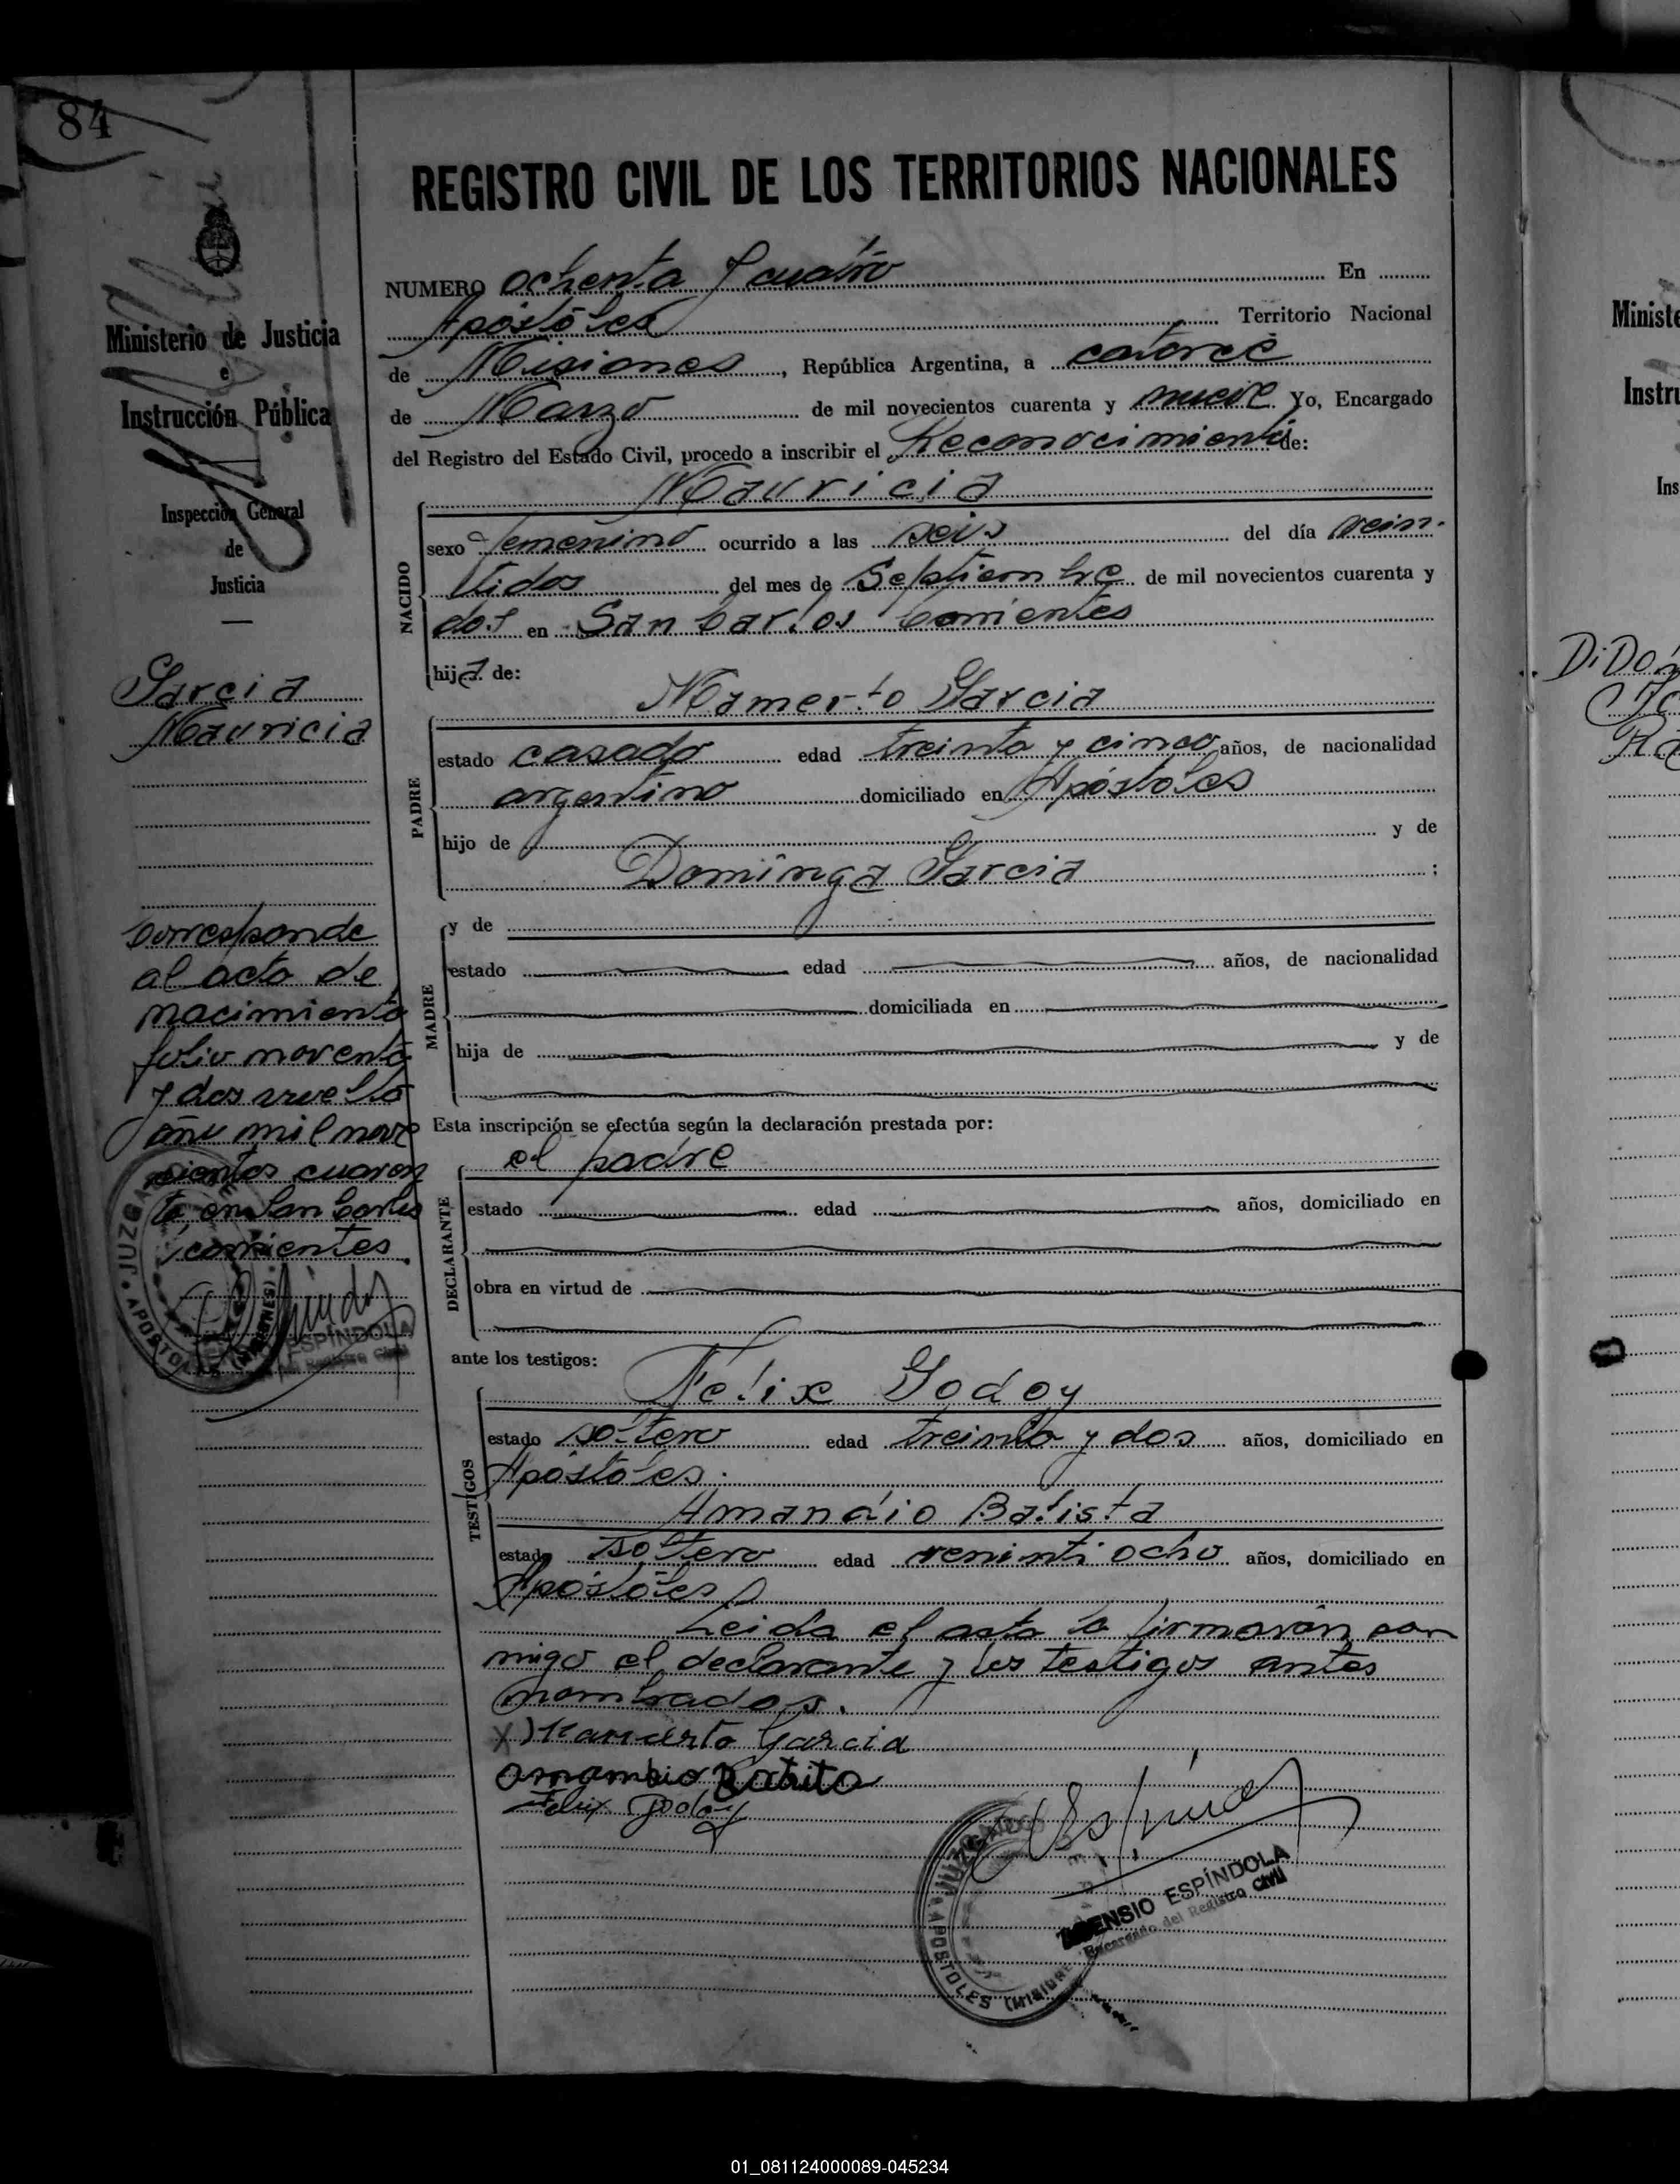 84
REGISTRO CIVIL DE LOS TERRITORIOS NACIONALES
NUMERO ochenta y cuatro En
Apóstoles Territorio Nacional
de Misiones, República Argentina, a catorce
de Marzo de mil novecientos cuarenta y nueve Yo, Encargado
del Registro del Estado Civil, procedo a inscribir el Reconocimiento de:
Mauricia
NACIDO
sexo femenino ocurrido a las seis del día vein-
tidos del mes de Septiembre de mil novecientos cuarenta y
dos en San Carlos Corrientes
hija de:
Mamerto Garcia
PADRE
estado casado edad treinta y cinco años, de nacionalidad
argentino domiciliado en Apóstoles
hijo de y de
Dominga Garcia ;
MADRE
y de
estado edad años, de nacionalidad
domiciliada en
hija de y de
Esta inscripción se efectúa según la declaración prestada por:
el padre
DECLARANTE
estado edad años, domiciliado en
obra en virtud de
ante los testigos:
Felix Godoy
TESTIGOS
estado soltero edad treinta y dos años, domiciliado en
Apóstoles.
Amancio Batista
estado soltero edad veninti ocho años, domiciliado en
Apóstoles
Leida el acta la firmaron con
migo el declarante y los testigos antes
nombrados.
X) Mamerto Garcia
Felix Godoy
JUZGADO
APOSTOLES (MISIONES)
ESPÍNDOLA
Encargado del Registro Civil
Ministerio de Justicia
e
Instrucción Pública
Inspección General
de
Justicia
Garcia
Mauricia
Corresponde
al acta de
nacimiento
folio noventa
y dos vuelta
año mil nove
cientos cuaren
ta, en San Carlos
corrientes.
JUZGA
APOSTOLES (MISIONES)
ESPÍNDOLA
Registro Civil
Ministe
Instru
Ins
01_081124000089-045234